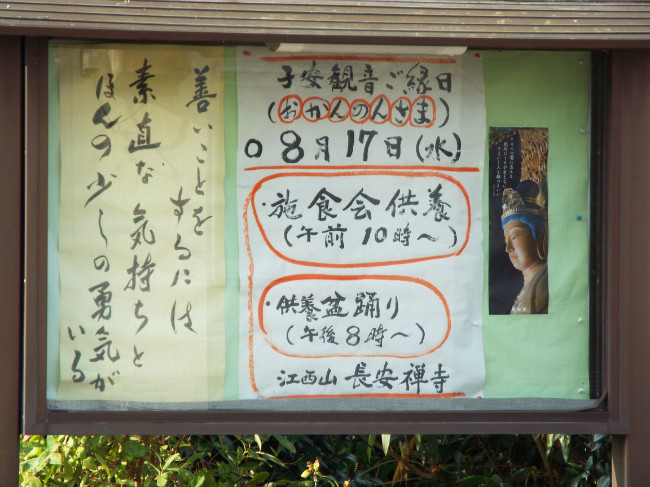 善いことを
するには
素直な気持ちと
ほんの少しの勇気が
いる
子安観音ご縁日
(おかんのんさま)
8月17日(水)
・施食会供養
(午前10時〜)
・供養盆踊り
(午後8時〜)
江西山 長安禅寺